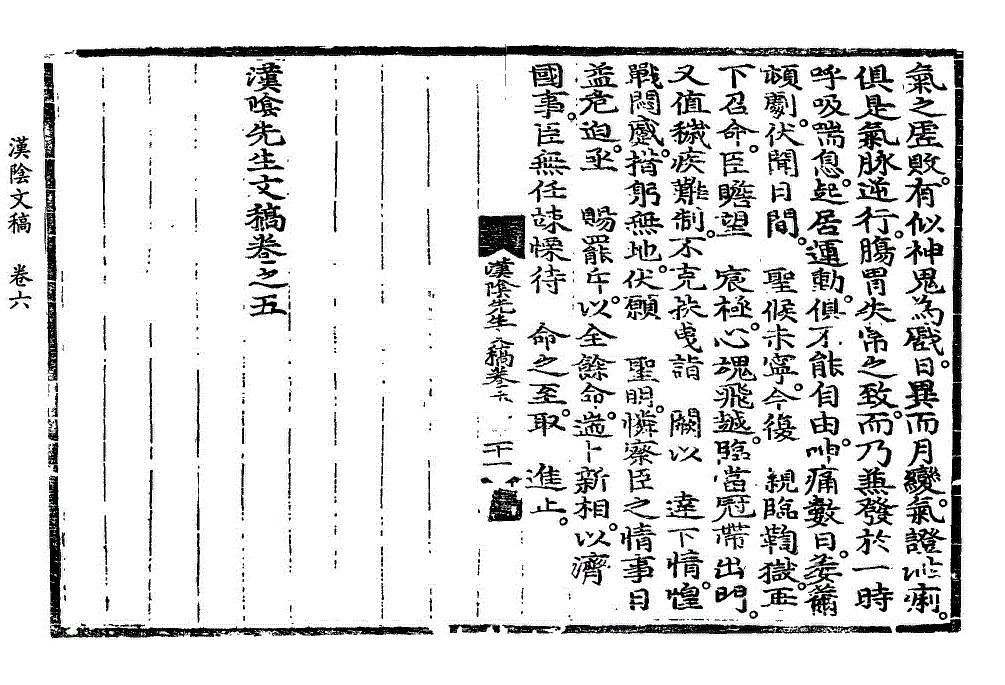 氣之虛敗。有似神鬼為戲。日異而月變。氣證㳄痢。
俱是氣脉逆行。膓胃失常之致。而乃兼發於一時
呼吸喘急。起居運動。俱不能自由。呻痛數日。委薾
頓劇。伏聞日間。聖候未寧。今復親臨鞫獄。至
下召命。臣瞻望宸極。心魂飛越。臨當冠帶出門。
又值穢疾難制。不克扶曳詣闕。以達下情。惶
戰悶蹙。措躬無地。伏願聖明。憐察臣之情事日
益危迫。亟賜罷斥。以全餘命。遄卜新相。以濟
國事。臣無任竦慄待命之至。取進止。
漢陰先生文稿卷之五
漢陰先生文稿卷六
二十一
漢陰文稿 卷六